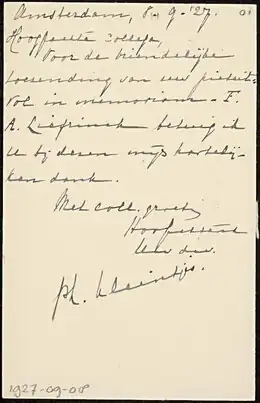 Amsterdam, 8. 9. '27.
Hooggeachte Collega,
Voor de vriendelijke
toezending van uw piëteit-
vol in memoriam - F.
A. Liefrinck betuig ik
U bij dezen mijn hartelij-
ken dank.
Met coll. groet,
Hoogachtend
Uw dw.
Ph. Kleintjes.
1927-09-08